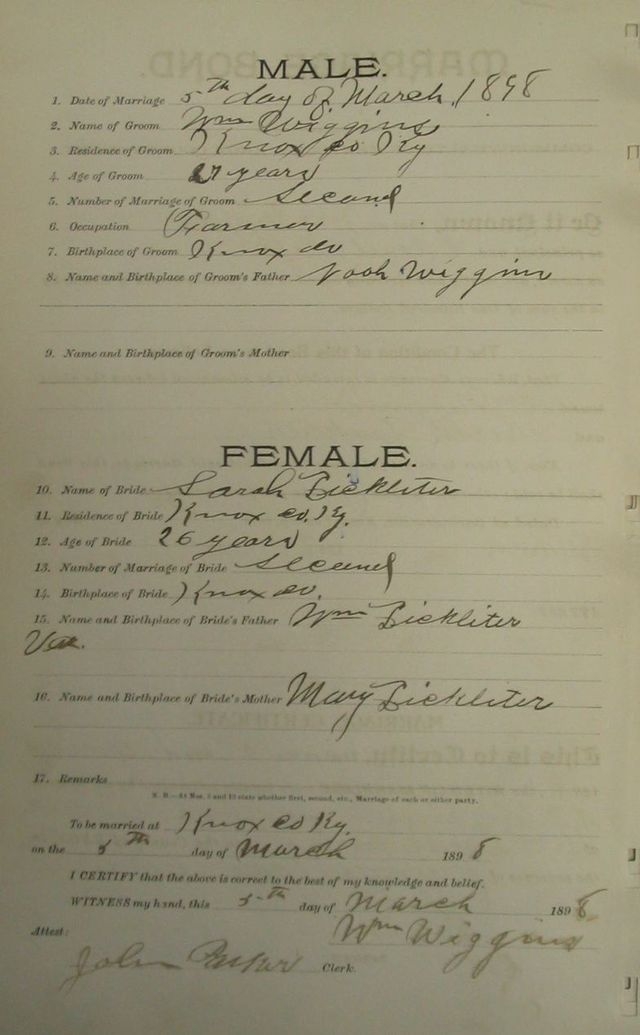 MALE.
1. Date of Marriage 5th day of March, 1898
2. Name of Groom Wm Wiggins
3. Residence of Groom Knox co Ky
4. Age of Groom 27 years
5. Number of Marriage of Groom Second
6. Occupation Farmer
7. Birthplace of Groom Knox co
8. Name and Birthplace of Groom's Father Noah Wiggins
9. Name and Birthplace of Groom's Mother
FEMALE.
10. Name of Bride Sarah Bickliter
11. Residence of Bride Knox co. Ky.
12. Age of Bride 26 years
13. Number of Marriage of Bride Second
14. Birthplace of Bride Knox co.
15. Name and Birthplace of Bride's Father Wm Bickliter
Va.
16. Name and Birthplace of Bride's Mother Mary Bickliter
17. Remarks
N. B.—At Nos. 5 and 13 state whether first, second, etc., Marriage of each or either party.
To be married at Knox co Ky.
on the 5th day of March 1898
I CERTIFY that the above is correct to the best of my knowledge and belief.
WITNESS my hand, this 5th day of March 1898
Attest: Wm Wiggins
John Parker Clerk.